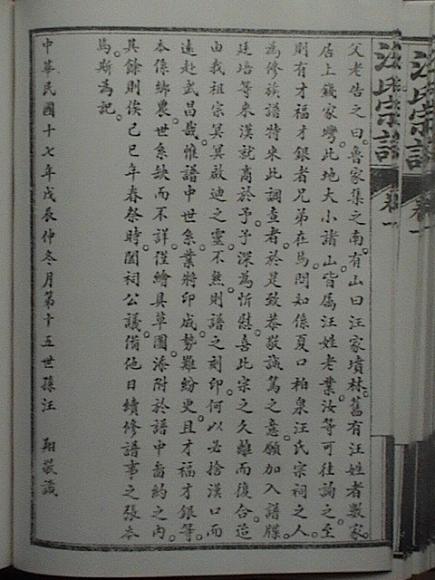 父老告之曰魯家集之南有山曰汪家墳林舊有汪姓者數家
居上錢家灣此地大小諸山皆屬汪姓老業汝等可往詢之至
則有才福才銀者兄弟在焉問知係夏口柏泉汪氏宗祠之人
為修族譜特來此調查者於是致恭敬誠篤之意願加入譜牒
廷培等來漢就商於予予深為忻慰喜此宗之久離而復合造
由我祖宗冥冥啟迪之靈不然則譜之刻印何以必捨漢口而
遠赴武昌哉惟譜中世系業將印成勢難紛更且才福才銀等
本係鄉農世系缺而不詳僅繪具草圖添附於譜中嗇約之內
其餘則俟己巳年春祭時開祠公議備他日續修譜事之張本
焉斯為記
中華民國十七年戊辰仲冬月第十五世孫汪 翔敬識
汪氏宗譜 卷一
汪氏宗譜 卷一